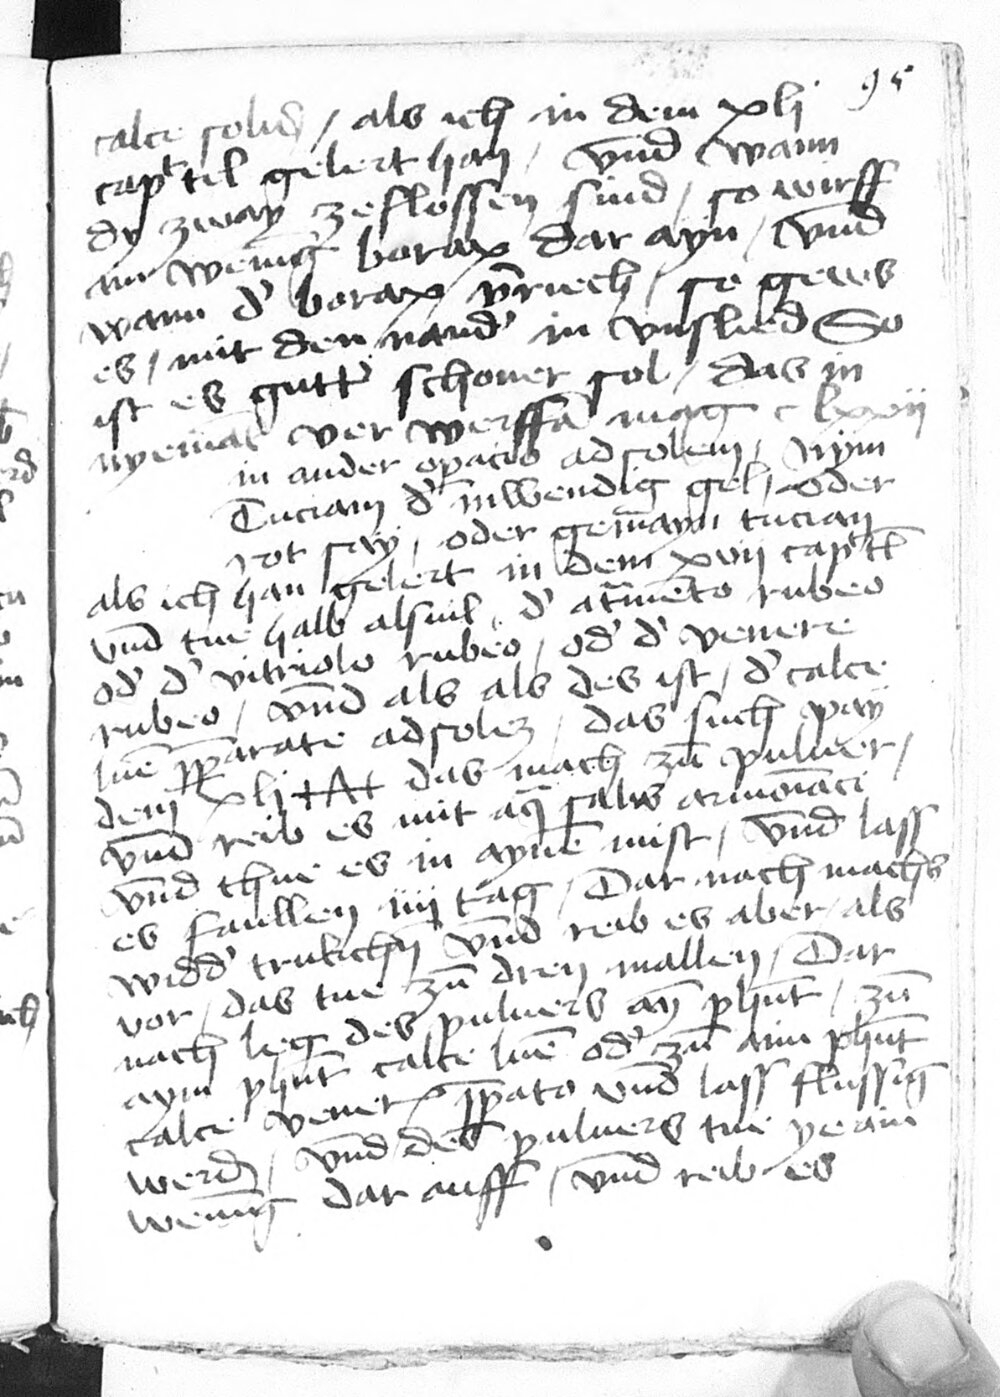 95
calce solid / als ich in dem xlj
capt̄tel gelert han / Vnd Wann
dy zway zeflossen sind / so wirff
ain wenīg borax dar ayn / Vnd
wann d' borax v̄riech / so geus
es / mit den nand' in vnslied So
ist es gutt' schoner sol / das in
nyemāt ver werffn̄ mag c lxxij
in ander opacio ad solem / Nym
Tuciam d' inwendig gel / oder
rot say / oder gemayn tucian
als ich han gelert in dem xvij captl̄
vnd tue halb alsuil d' atm̄ēto rubeo
od' d' vitriolo rubeo / od' d' venere
rubeo / vnd als als des ist / d' calce
lune pparate ad solez / das such pay
dem xlj +A+ das mach zu puluer /
vnd reib es mit aq̄ salis armoniaci
vnd thue es in ayne mist / Vnd lass
es faullen iiij tag / Dar nach machs
widd' truckchn̄ Vnd reib es aber / als
vor / das tue zu dren mallen / Dar
nach leg des puluers ay phūt / zu
aym phūt calce lune od' zu aim phūt
calce vener pparato vnd lass flussig
werdn / Vnd des puluers tue ye ain
wenīg dar auff / vnd reib es